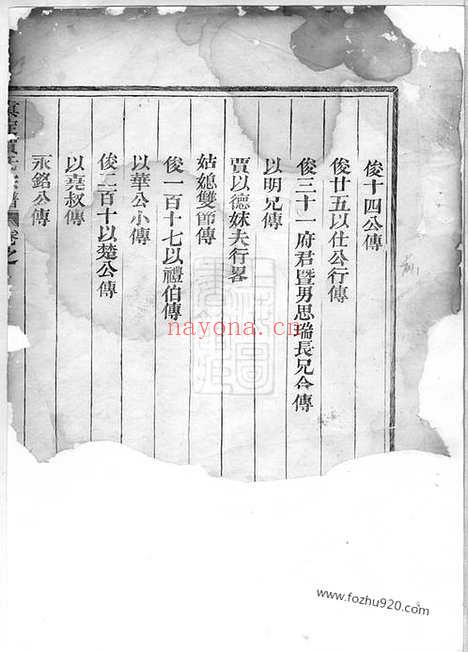 俊十四公傳
俊廿五以仕公行傳
俊三十一府君暨男思瑞長兄合傳
以明兄傳
賈以德妹夫行畧
姑媳雙節傳
俊一百十七以禮伯傳
以華公小傳
俊二百十以楚公傳
以堯叔傳
永銘公傳
卷之
nayona.cn
www.fozhu920.com